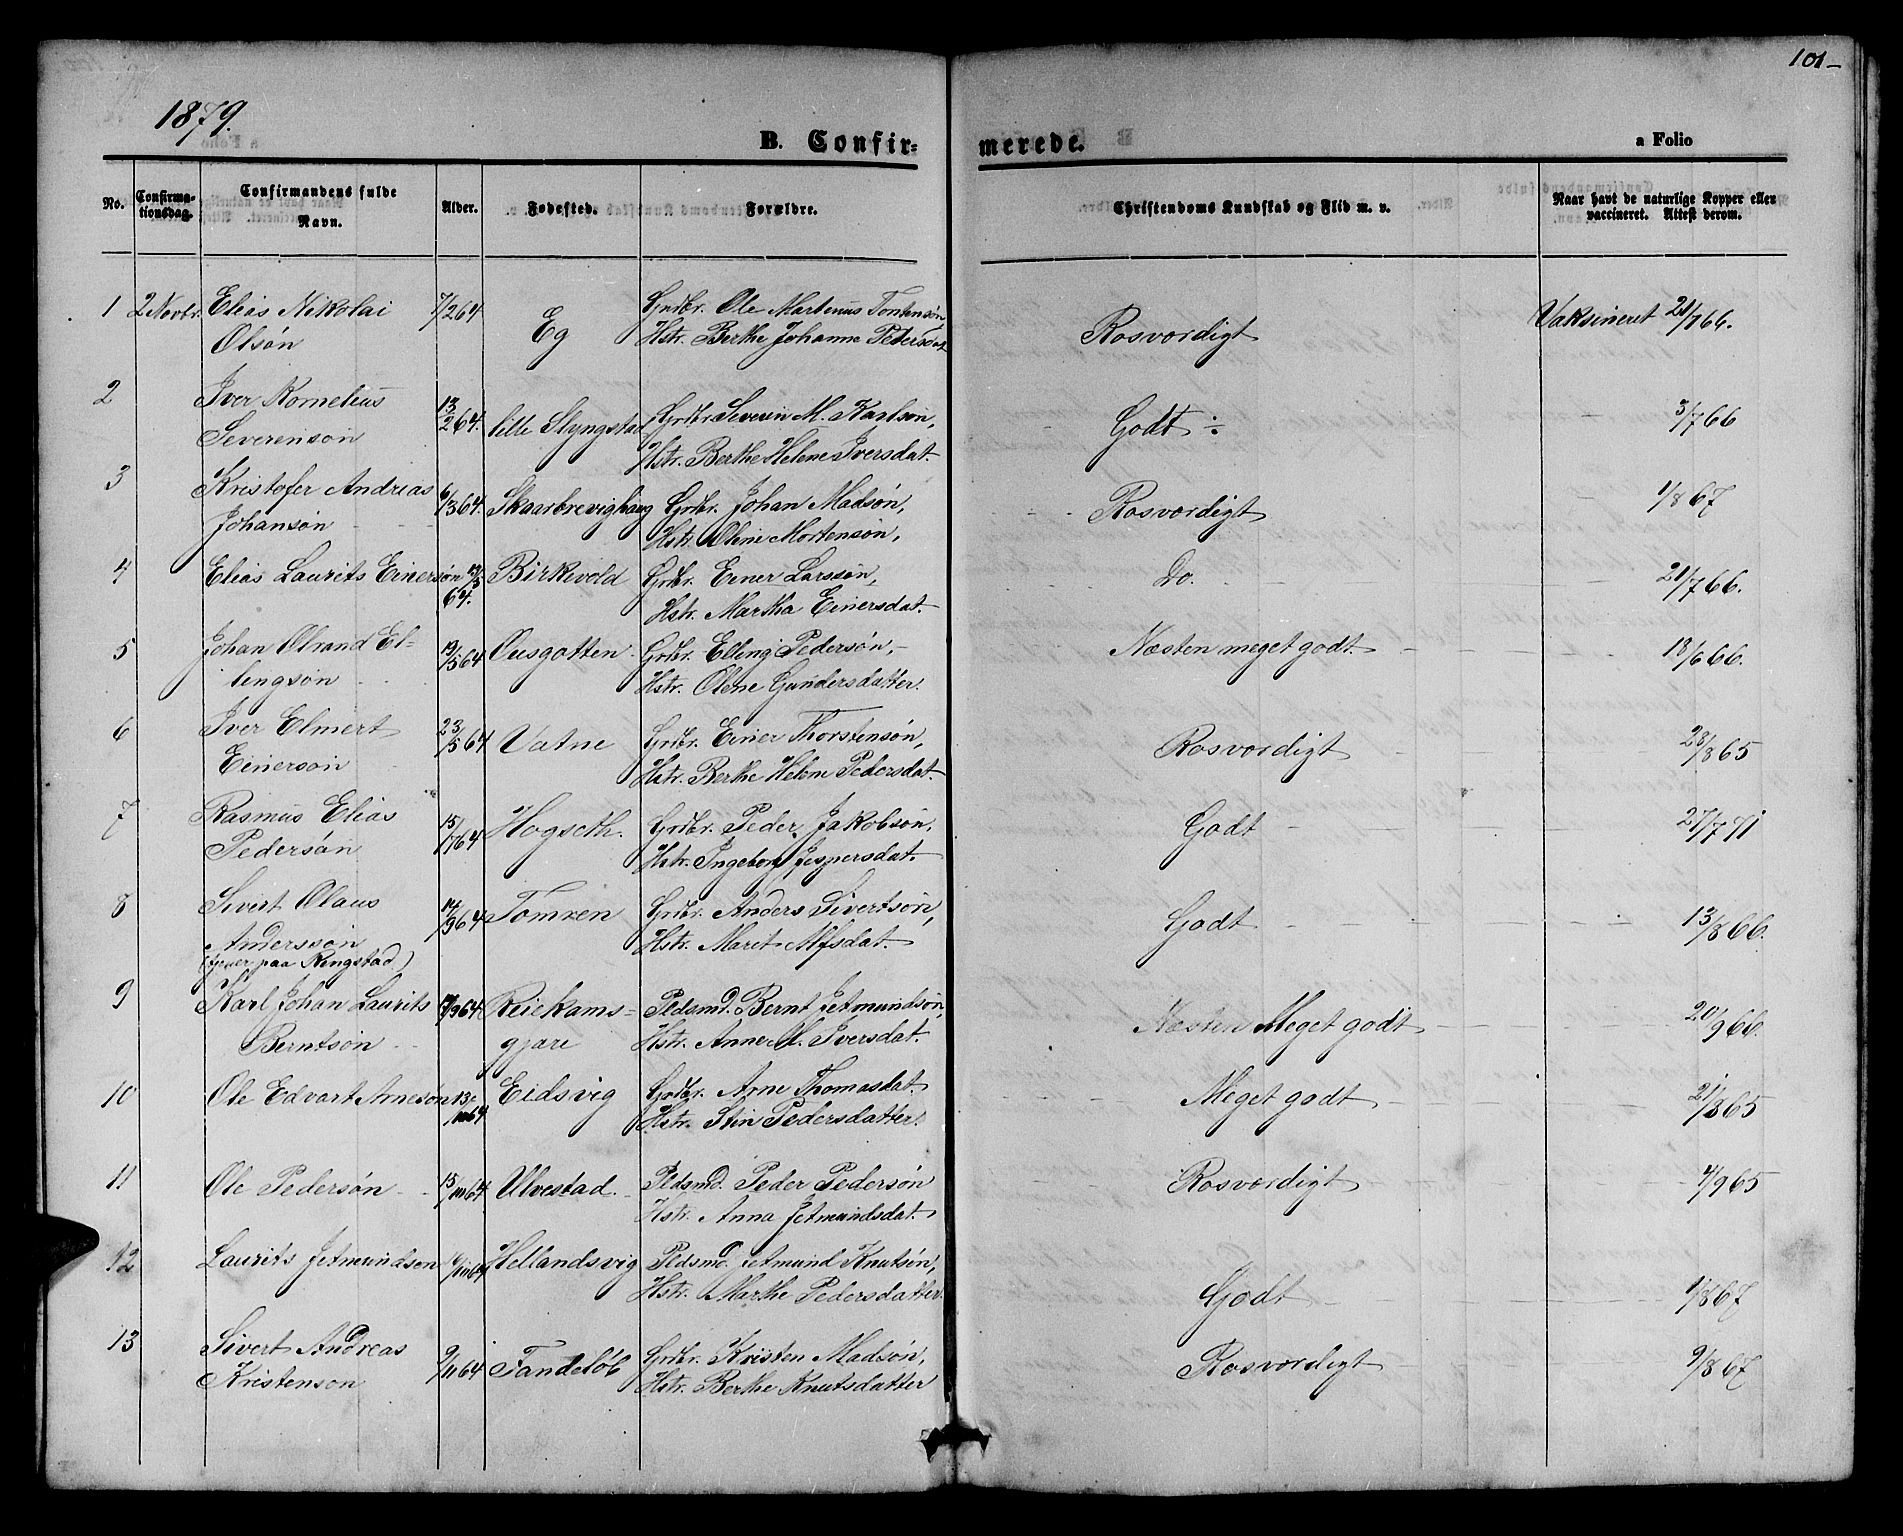 1879.
101-
B. Confir-
merede.
a Folio
No.
Confirma-
tionsdag.
Confirmandens fulde
Navn.
Alder.
Fødested.
Forældre.
Christendoms Kundskab og Flid m. v.
Naar havt de naturlige Kopper eller
vaccineret. Attest derom.
1 2 Novbr. Elias Nikolai 7/2 64 Grdbr. Ole Martenus
Olsøn Eg Hstr. Berthe Johanne Pedersdat
Rosværdigt Vaksineret 21/7 66.
2 Iver Kornelius
Severensøn 13/2 64. lille Slyngstad Grdbr. Severin M. Karlsøn,
Hstr. Berthe Helene Iversdat.
Godt ÷ 3/7 66
3 Kristofer Andreas
Johansøn 6/3 64. Skaarbrevighaug Grdbr. Johan Madsøn,
Hstr. Oline Mortensøn,
Rosværdigt 1/8 67
4 Elias Laurits Einersøn 64. Birkevold Grdbr. Einer Larssøn,
Hstr. Martha Einersdat.
Do. 21/7 66.
5 Johan Olrand El-
lingsøn 19/5 64 Ousgotten Grdbr. Elling Pedersøn,
Hstr. Olene Gundersdatter.
Næsten meget godt. 18/6 66.
6 Iver Elmert
Einersøn 23/5 64 Vatne Grdbr. Einer Thorstensøn,
Hstr. Berthe Helene Pedersdat.
Rosværdigt 28/8 65
7 Rasmus Elias
Pedersøn 15/7 64 Hogseth. Grdbr. Peder Jakobsøn,
Hstr. Ingeborg Jespersdat.
Godt 27/7 71
8 Sivert Olaus
Anderssøn
(tjener paa Ringstad) 14/9 64 Tomren Grdbr. Anders Sivertsøn,
Hstr. Marit Alfsdat.
Godt 13/8 66.
9 Karl Johan Laurits
Berntsøn 17/9 64 Reiekams-
gjære Pldsmd. Bernt Jetmundsøn,
Hstr. Anne M. Iversdat.
Næsten Meget godt 20/9 66.
10 Ole Edvart Arnesøn 13/10 64 Eidsvig Grdbr. Arne Thomasdat.
Hstr. Stin Pedersdatter.
Meget godt 21/8 65
11 Ole Pedersøn 15/10 64 Ulvestad. Pldsmd. Peder Pedersøn
Hstr. Anna Jetmundsdat.
Rosværdigt 4/9 65
12 Laurits Jetmundsøn 6/10 64 Hellandsvig Pldsmd. Jetmund Knutsøn,
Hstr. Marthe Pedersdatter
Godt 1/8 67
13 Sivert Andreas
Kristensøn 9/11 64 Tandeløb Grdbr. Kristen Madsøn,
Hstr. Berthe Knutsdatter
Rosværdigt 9/8 67